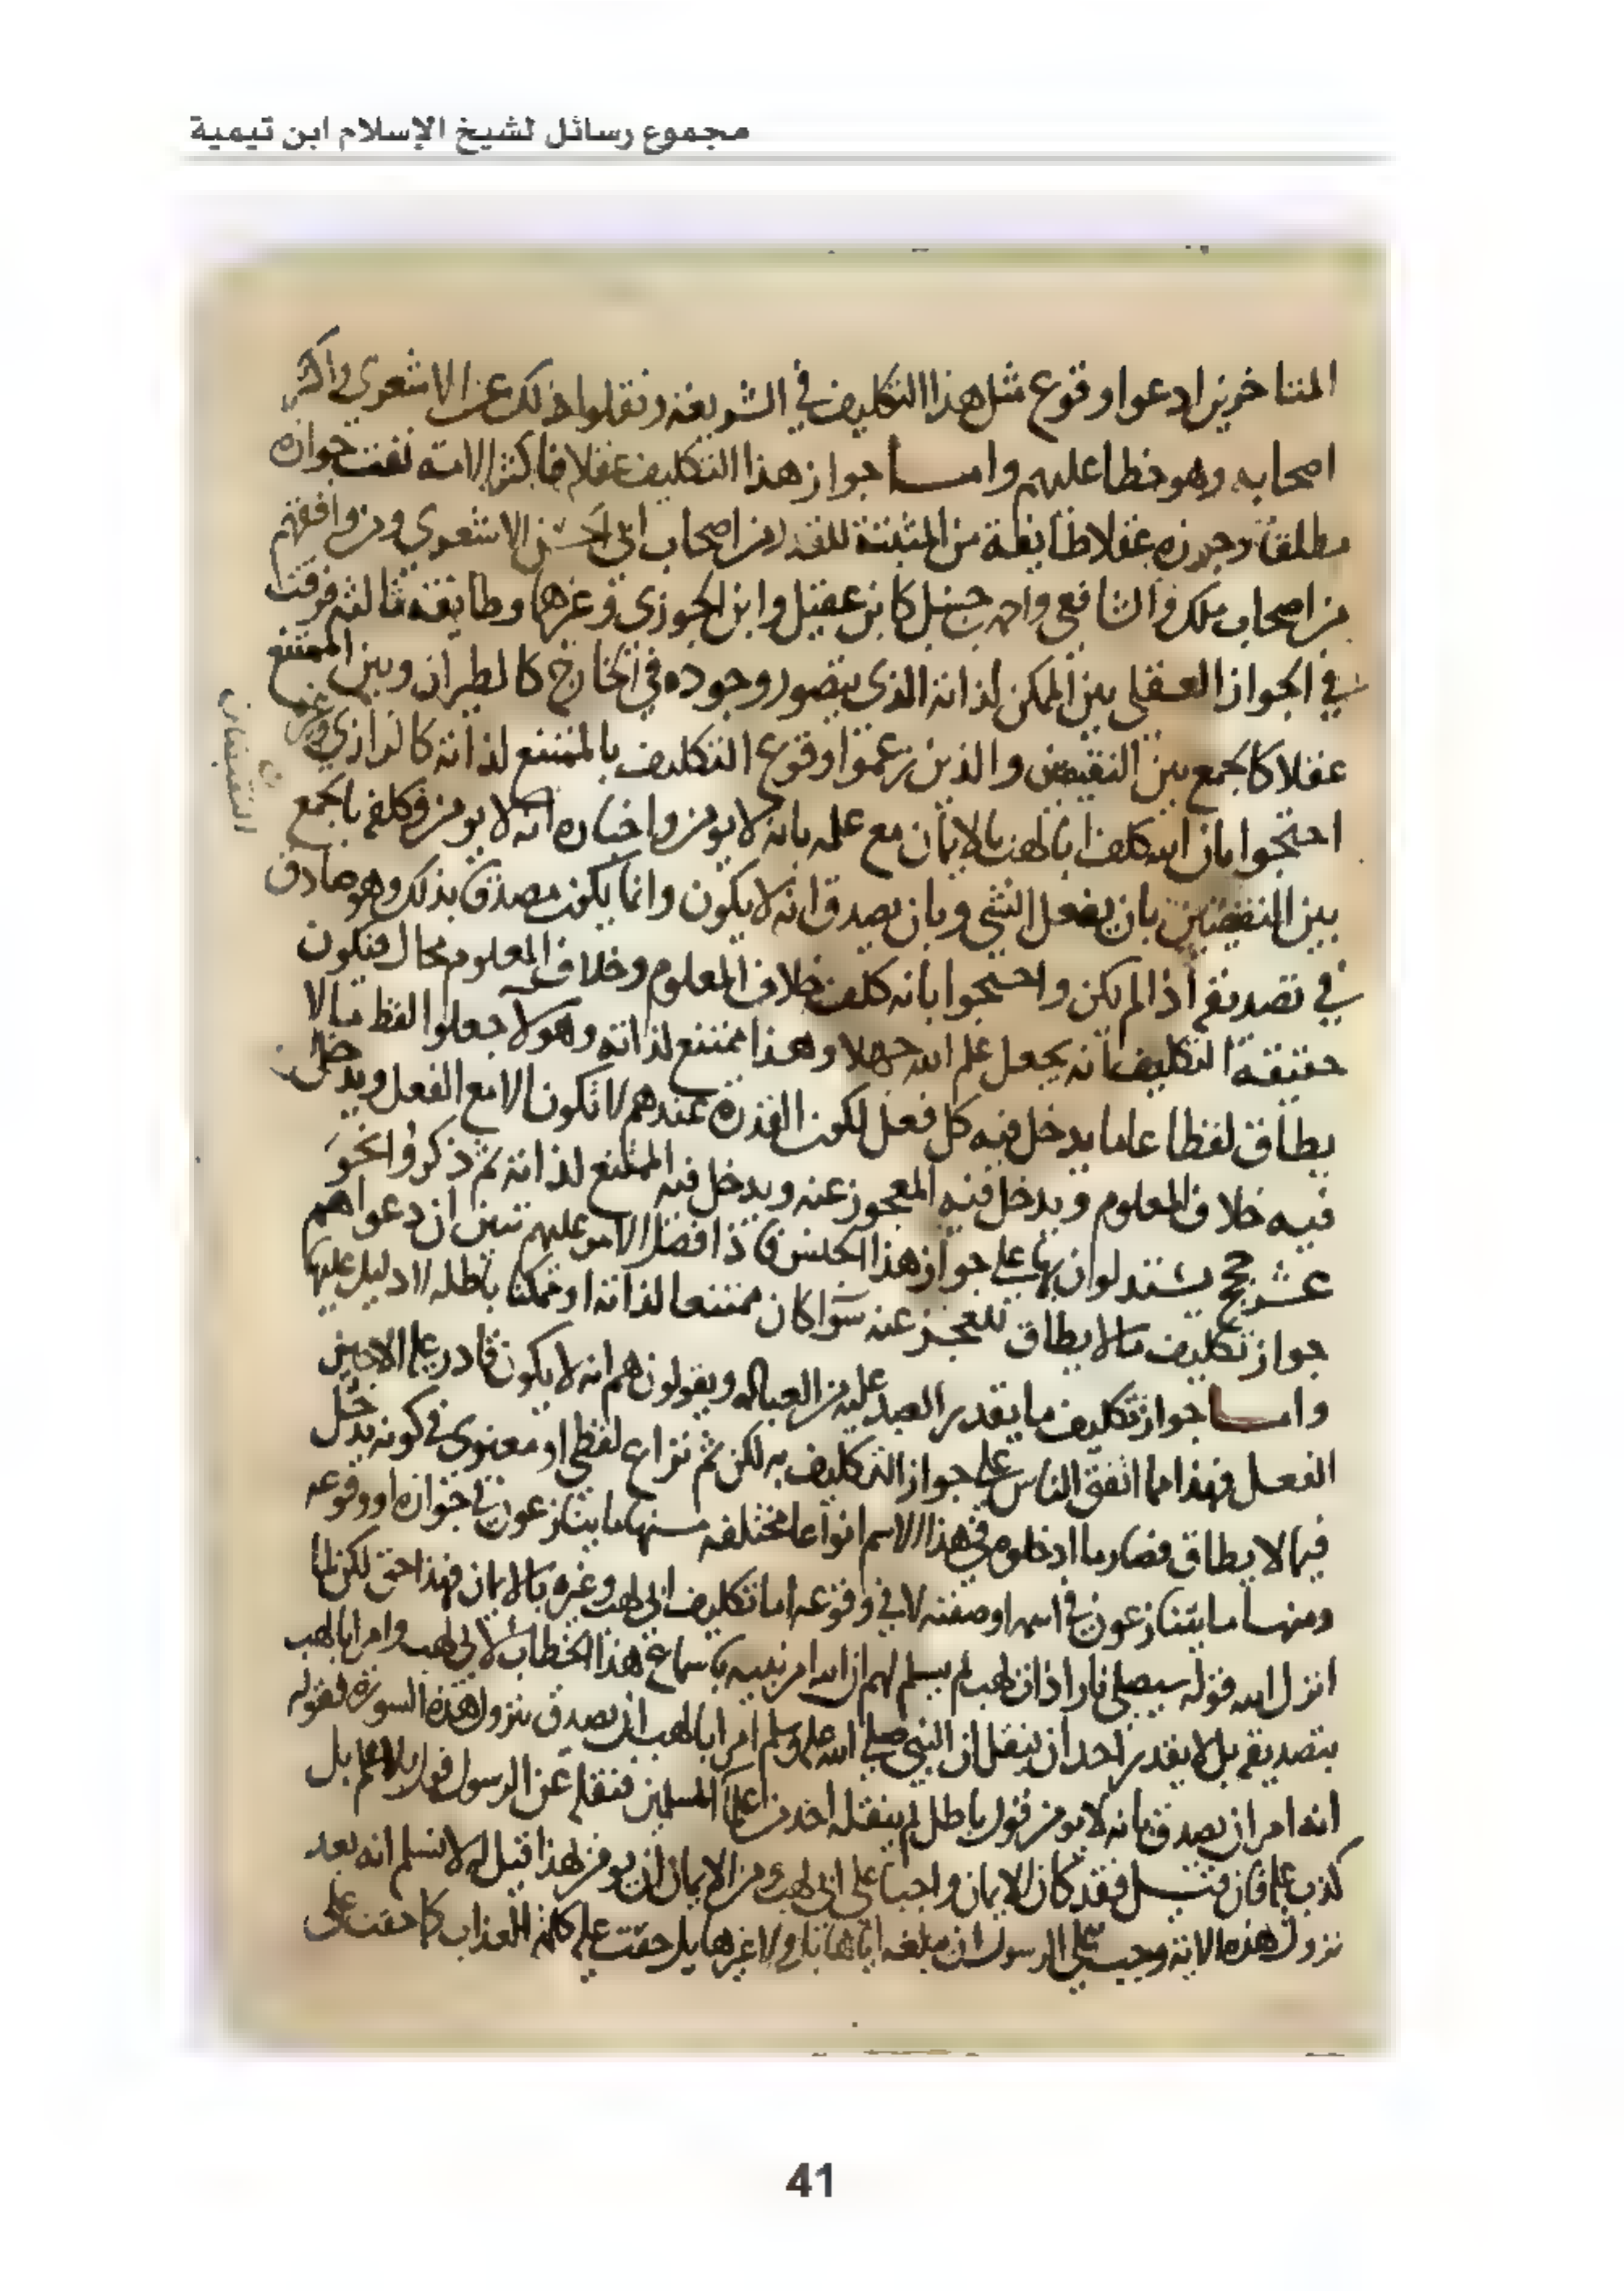 مجموع رسائل لشيخ الإسلام ابن تيمية
المتاخرين ادعوا وقوع مثل هذا التكليف في الشريعة ونقلوا ذلك عن الاشعري واكثر
اصحابه وهو خطا عليهم واما جواز هذا التكليف عقلا فاكثر الامة نفت جوازه
مطلقا وجوزه عقلا طايفة من المثبتة للقدر من اصحاب ابي الحسن الاشعري ومن وافقهم
من اصحاب ملك والشافعي واحمد بن حنبل كابن عقيل وابن الجوزي وغيرهما وطايفة ثالثة فرقت
في الجواز العقلي بين الممكن لذاته الذي يتصور وجوده في الخارج كالطيران وبين الممتنع
عقلا كالجمع بين النقيضين والذين زعموا وقوع التكليف بالممتنع لذاته كالرازي وغيره
النقيضين
احتجوا بان الله كلف ابا لهب بالايمان مع علمه بانه لا يومن واخباره انه لا يومن وكلفه بالجمع
بين النقيضين بان يفعل الشي وبان يصدق انه لا يكون وانما يكون مصدق بذلك وهو صادق
في تصديقه اذا لم يكن واحتجوا بانه كلف خلاف المعلوم وخلاف المعلوم محال فيكون
حقيقة التكليف انه يجعل علم الله جهلا وهذا ممتنع لذاته وهولا جعلوا لفظ ما لا
يطاق لفظا عاما يدخل فيه كل فعل لكون القدرة عندهم لا تكون الا مع الفعل ويدخل
فيه خلاف المعلوم ويدخل فيه المعجوز عنه ويدخل فيه الممتنع لذاته ثم ذكروا نحو
عشر حجج يستدلون بها على جواز هذا الجنس فاذا فصل الامر عليهم تبين ان دعواهم
جواز تكليف ما لا يطاق للعجز عنه سوا كان ممتنعا لذاته او ممكنا باطله لا دليل عليها
واما جواز تكليف ما يقدر العبد عليه من العباده ويقولون هم انه لا يكون قادر عليه الا حين
الفعل فهذا مما اتفق الناس على جواز التكليف به لكن ثم نزاع لفظي او معنوي في كونه يدخل
فيما لا يطاق فصار ما ادخلوه في هذا الاسم انواعا مختلفه منها ما يتنازعون في جوازه او وقوعه
ومنها ما يتنازعون في اسمه او صفته لا في وقوعه اما تكليف ابي لهب وغيره بالايمان فهذا حق لكن لما
انزل الله قوله سيصلى نارا ذات لهب لم يسلم لهم ان الله امر نبيه باسماع هذا الخطاب لابي لهب وامر ابا لهب
بتصديقه بل لا يقدر احد ان ينقل ان النبي صلى الله عليه وسلم امر ابا لهب ان يصدق بنزول هذه السورة فقوله
انه امر ان يصدق بانه لا يومن قول باطل لم ينقله احد من علما المسلمين فنقله عن الرسول قول بلا علم بل
كذب عليه فان قيل فقد كان الايمان واجبا على ابي لهب ومن الايمان ان يومن بهذا قيل له لا نسلم انه بعد
نزول هذه الاية وجب على الرسول ان يبلغه اياها بل ولا غيرها بل حقت عليه كلمة العذاب كما حقت على
41